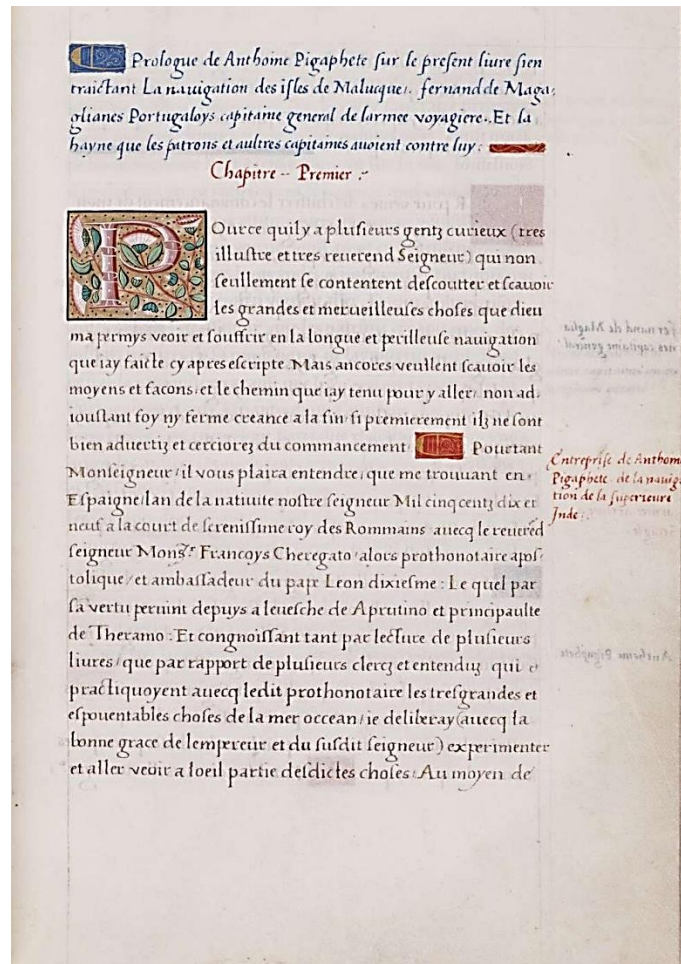 Prologue de Anthoine Pigaphete sur le present liure sien
traictant La nauigation des isles de Malucque. fernand de Maga,
glianes Portugaloys capitaine general de larmee voyagiere. Et la
hayne que les patrons et aultres capitaines auoient contre luy:
Chapitre -- Premier :~
POurce quil y a plusieurs gentz curieux (tres
illustre et tres reuerend Seigneur) qui non
seullement se contentent descoutter et scauoir
les grandes et merueilleuses choses que dieu
ma permys veoir et souffrir en la longue et perilleuse nauigation
que iay faicte cy apres escripte. Mais ancores veullent scauoir les
moyens et facons: et le chemin que iay tenu pour y aller. non ad,
ioustant foy ny ferme creance a la fin si premierement ilz ne sont
bien aduertiz et cerciorez du commancement. Pourtant
Monseigneur/ il vous plaira entendre, que me trouuant en
Espaigne/ lan de la natiuite nostre seigneur Mil cinq centz dix et
neuf a la court de serenissime roy des Rommains auecq le reuered
seigneur Monsr. Francoys Cheregato/ alors prothonotaire apos,
tolique/ et ambassadeur du pape Leon dixiesme: Le quel par
sa vertu peruint depuys a leuesche de Aprutino et principaulte
de Theramo: Et congnoissant tant par lecture de plusieurs
liures/ que par rapport de plusieurs clercz et entenduz qui
practiquoyent auecq ledit prothonotaire les tresgrandes et
espouentables choses de la mer occean/ ie deliberay (auecq la
bonne grace de lempereur et du susdit seigneur) experimenter
et aller veoir a loeil partie desdictes choses: Au moyen de
Entreprise de Anthoin
Pigaphete. de la nauiga
tion de la superieure
Inde:.